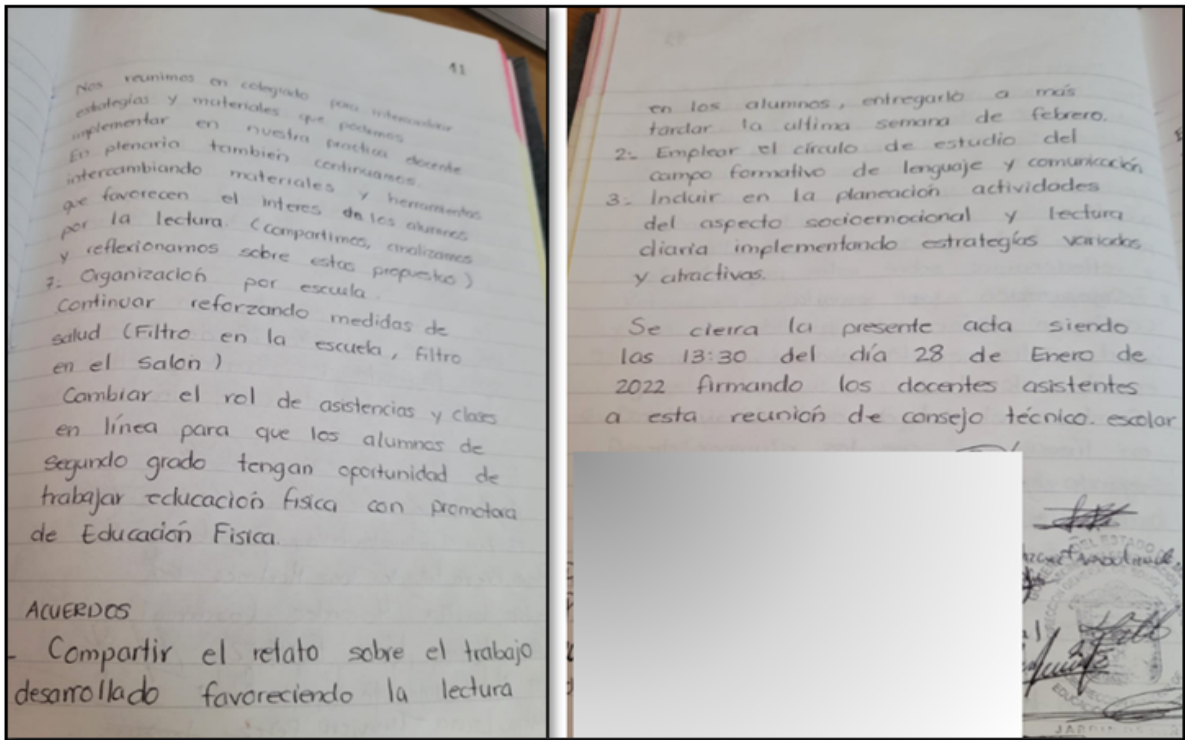 41
Nos reunimos en colegiado para intercambiar
estrategias y materiales que podemos
implementar en nuestra practica docente
En plenaria tambien continuamos
intercambiando materiales y herramientas
que favorecen el interes de los alumnos
por la lectura. (compartimos, analizamos
y reflexionamos sobre estas propuestas)
7. Organización por escuela.
Continuar reforzando medidas de
salud (Filtro en la escuela, filtro
en el salon)
Cambiar el rol de asistencias y clases
en línea para que los alumnos de
segundo grado tengan oportunidad de
trabajar educación fisica con promotora
de Educación Fisica.
ACUERDOS
- Compartir el relato sobre el trabajo
desarrollado favoreciendo la lectura
en los alumnos, entregarlo a más
tardar la ultima semana de febrero.
2.- Emplear el círculo de estudio del
campo formativo de lenguaje y comunicación
3.- Incluir en la planeación actividades
del aspecto socioemocional y lectura
diaria implementando estrategías variadas
y atractivas.
Se cierra la presente acta siendo
las 13:30 del día 28 de Enero de
2022 firmando los docentes asistentes
a esta reunión de consejo técnico. escolar
DEL ESTADO